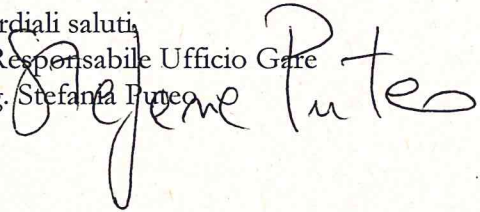 rdiali saluti,
Responsabile Ufficio Gare
g. Stefania Puteo
Stefane Puteo